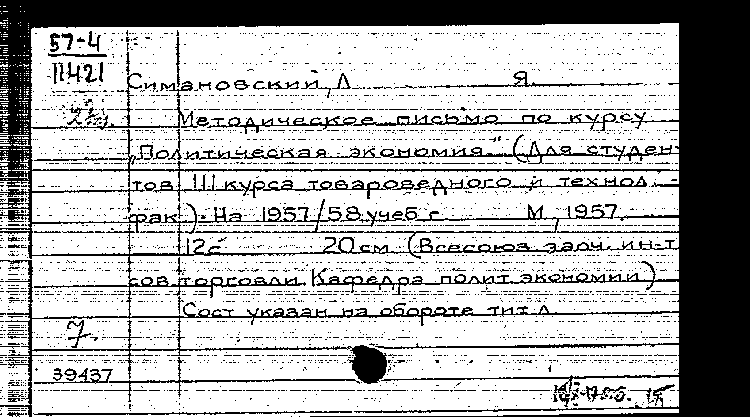 57-4
11421
Симановский, Л Я.
Методическое письмо по курсу
„Политическая экономия." (Для студен-
тов III курса товароведного и технол. -
фак). На 1957/58 учеб г М, 1957.
12с 20 см (Всесоюз заоч. ин-т
сов торговли. Кафедра полит. экономии)
Сост указан на обороте тит л
7.
39437